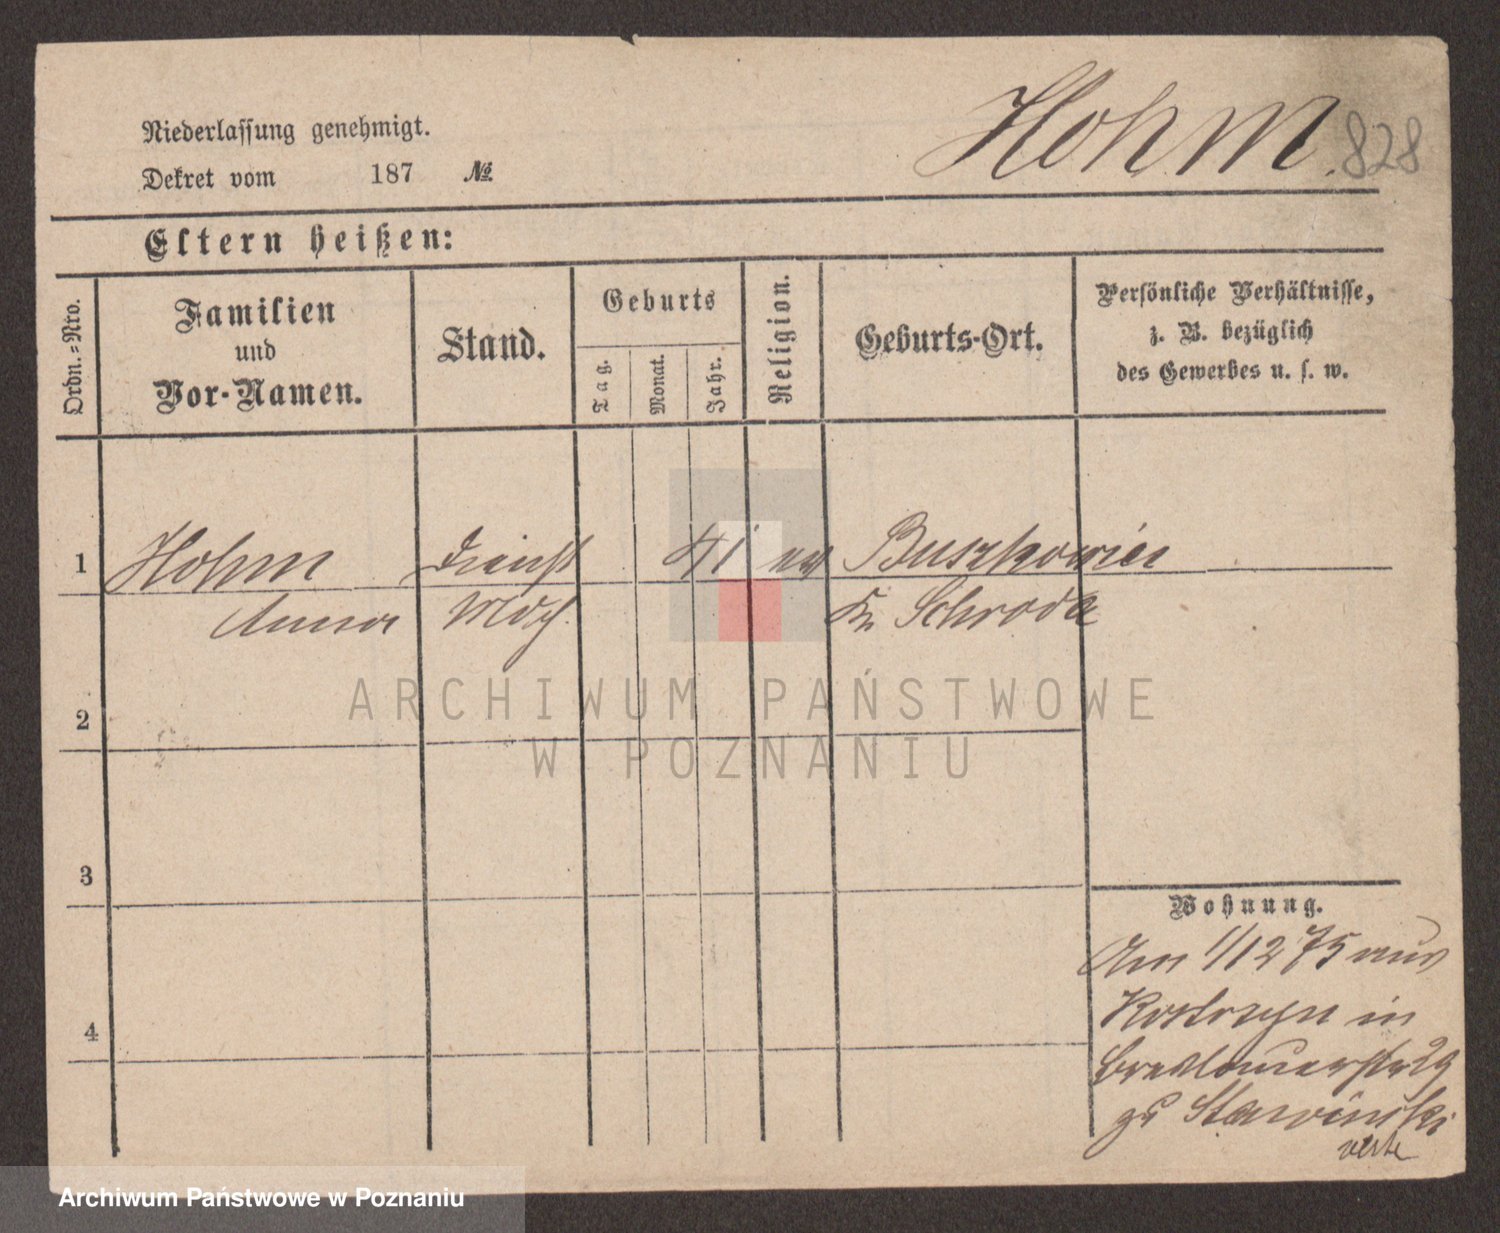 Hohm. 828
Niederlassung genehmigt.
Dekret vom 187 №
Eltern heißen:
Ordn.-Nro.
Familien
und
Vor-Namen.
Stand.
Geburts
Tag.
Monat.
Jahr.
Religion.
Geburts-Ort.
Persönliche Verhältnisse,
z. B. bezüglich
des Gewerbes u. s. w.
1 Hohm Dienst 41 Buszkowiec
Anna Mdch. Kr. Schroda
2
3
4
Wohnung.
Am 1/12 75 aus
Kostrzyn in
Breslauerstr 29
zu Stawinski
verte
ARCHIWUM PAŃSTWOWE
W POZNANIU
Archiwum Państwowe w Poznaniu